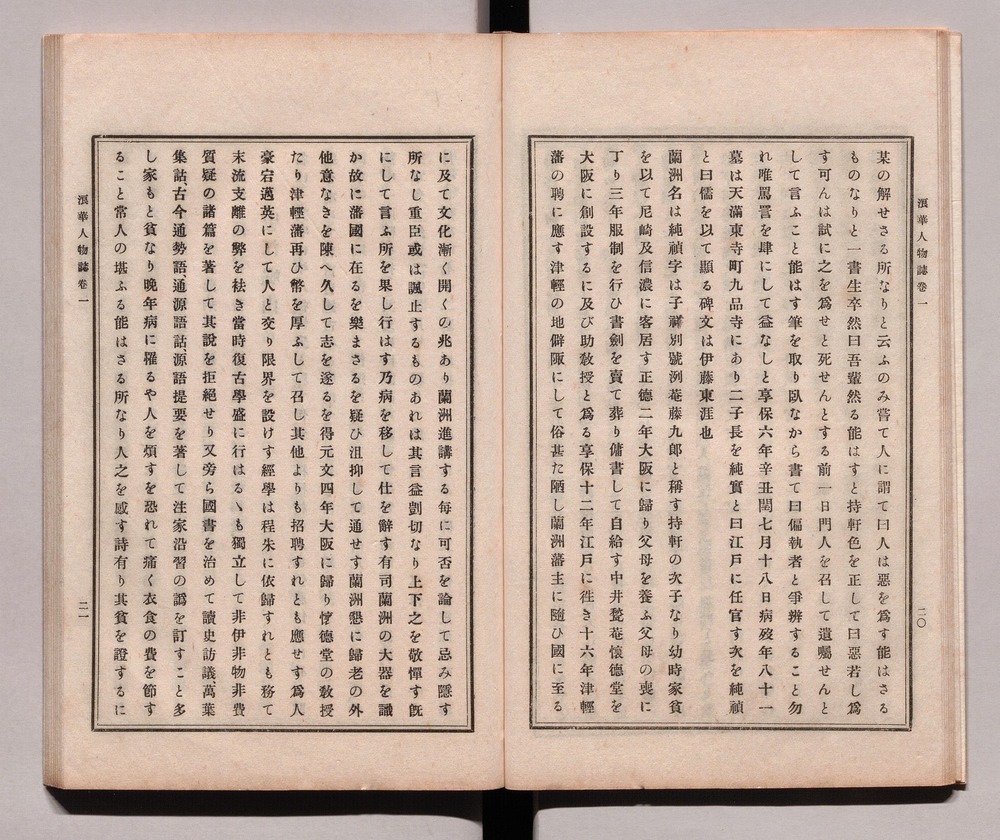 浪華人物誌卷一
二〇
某の解せさる所なりと云ふのみ嘗て人に謂て曰人は惡を爲す能はさる
ものなりと一書生卒然曰吾輩然る能はすと持軒色を正して曰惡若し爲
す可んは試に之を爲せと死せんとする前一日門人を召して遺囑せんと
して言ふこと能はす筆を取り臥なから書て曰偏執者と爭辨すること勿
れ唯罵詈を肆にして益なしと享保六年辛丑閏七月十八日病歿年八十一
墓は天滿東寺町九品寺にあり二子長を純實と曰江戸に任官す次を純禎
と曰儒を以て顯る碑文は伊藤東涯也
蘭洲名は純禎字は子祥別號洌菴藤九郎と稱す持軒の次子なり幼時家貧
を以て尼崎及信濃に客居す正德二年大阪に歸り父母を養ふ父母の喪に
丁り三年服制を行ひ書劍を賣て葬り傭書して自給す中井甃菴懷德堂を
大阪に創設するに及び助敎授と爲る享保十二年江戸に徃き十六年津輕
藩の聘に應す津輕の地僻陬にして俗甚た陋し蘭洲藩主に隨ひ國に至る
に及て文化漸く開くの兆あり蘭洲進講する每に可否を論して忌み隱す
所なし重臣或は諷止するものあれは其言益剴切なり上下之を敬憚す旣
にして言ふ所を果し行はす乃病を移して仕を辭す有司蘭洲の大器を識
か故に藩國に在るを樂まさるを疑ひ沮抑して通せす蘭洲懇に歸老の外
他意なきを陳へ久して志を遂るを得元文四年大阪に歸り懷德堂の敎授
たり津輕藩再ひ幣を厚ふして召し其他よりも招聘すれとも應せす爲人
豪宕邁英にして人と交り限界を設けす經學は程朱に依歸すれとも務て
末流支離の弊を袪き當時復古學盛に行はるヽも獨立して非伊非物非費
質疑の諸篇を著して其說を拒絕せり又旁ら國書を治めて讀史訪議、萬葉
集詁、古今通、勢語通、源語詁、源語提要を著して注家沿習の譌を訂すこと多
し家もと貧なり晚年病に罹るや人を煩すを恐れて痛く衣食の費を節す
ること常人の堪ふる能はさる所なり人之を感す詩有り其貧を證するに
浪華人物誌卷一
二一